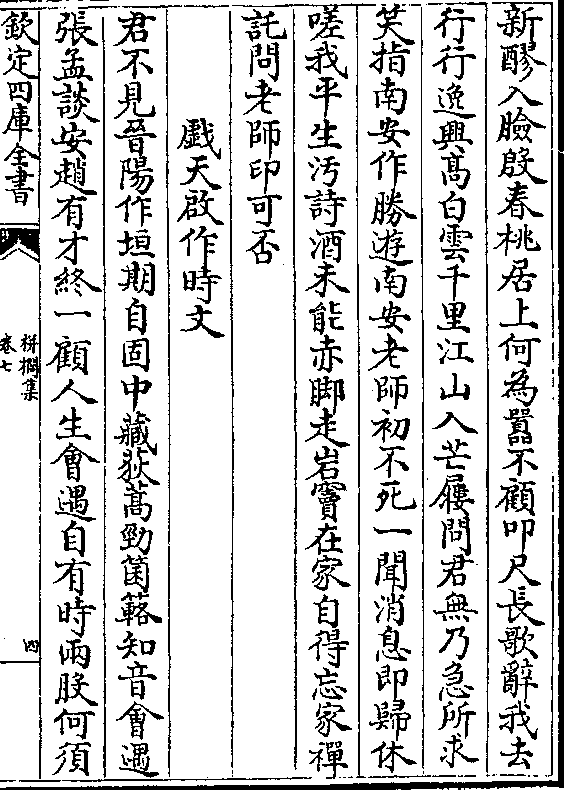 新醪入臉殷春桃居上何為囂不顧叩尺長歌辭我去
行行逸興髙白雲千里江山入芒屨問君無乃急所求
笑指南安作勝遊南安老師初不死一聞消息即歸休
嗟我平生汚詩酒未能赤脚走岩竇在家自得忘家禪
託問老師印可否
戯天啟作時文
君不見晉陽作垣期自固中藏荻蒿勁箘簵知音會遇
張孟談安趙有才終一顧人生會遇自有時兩股何須
欽定四庫全書
栟櫚集
卷七
四